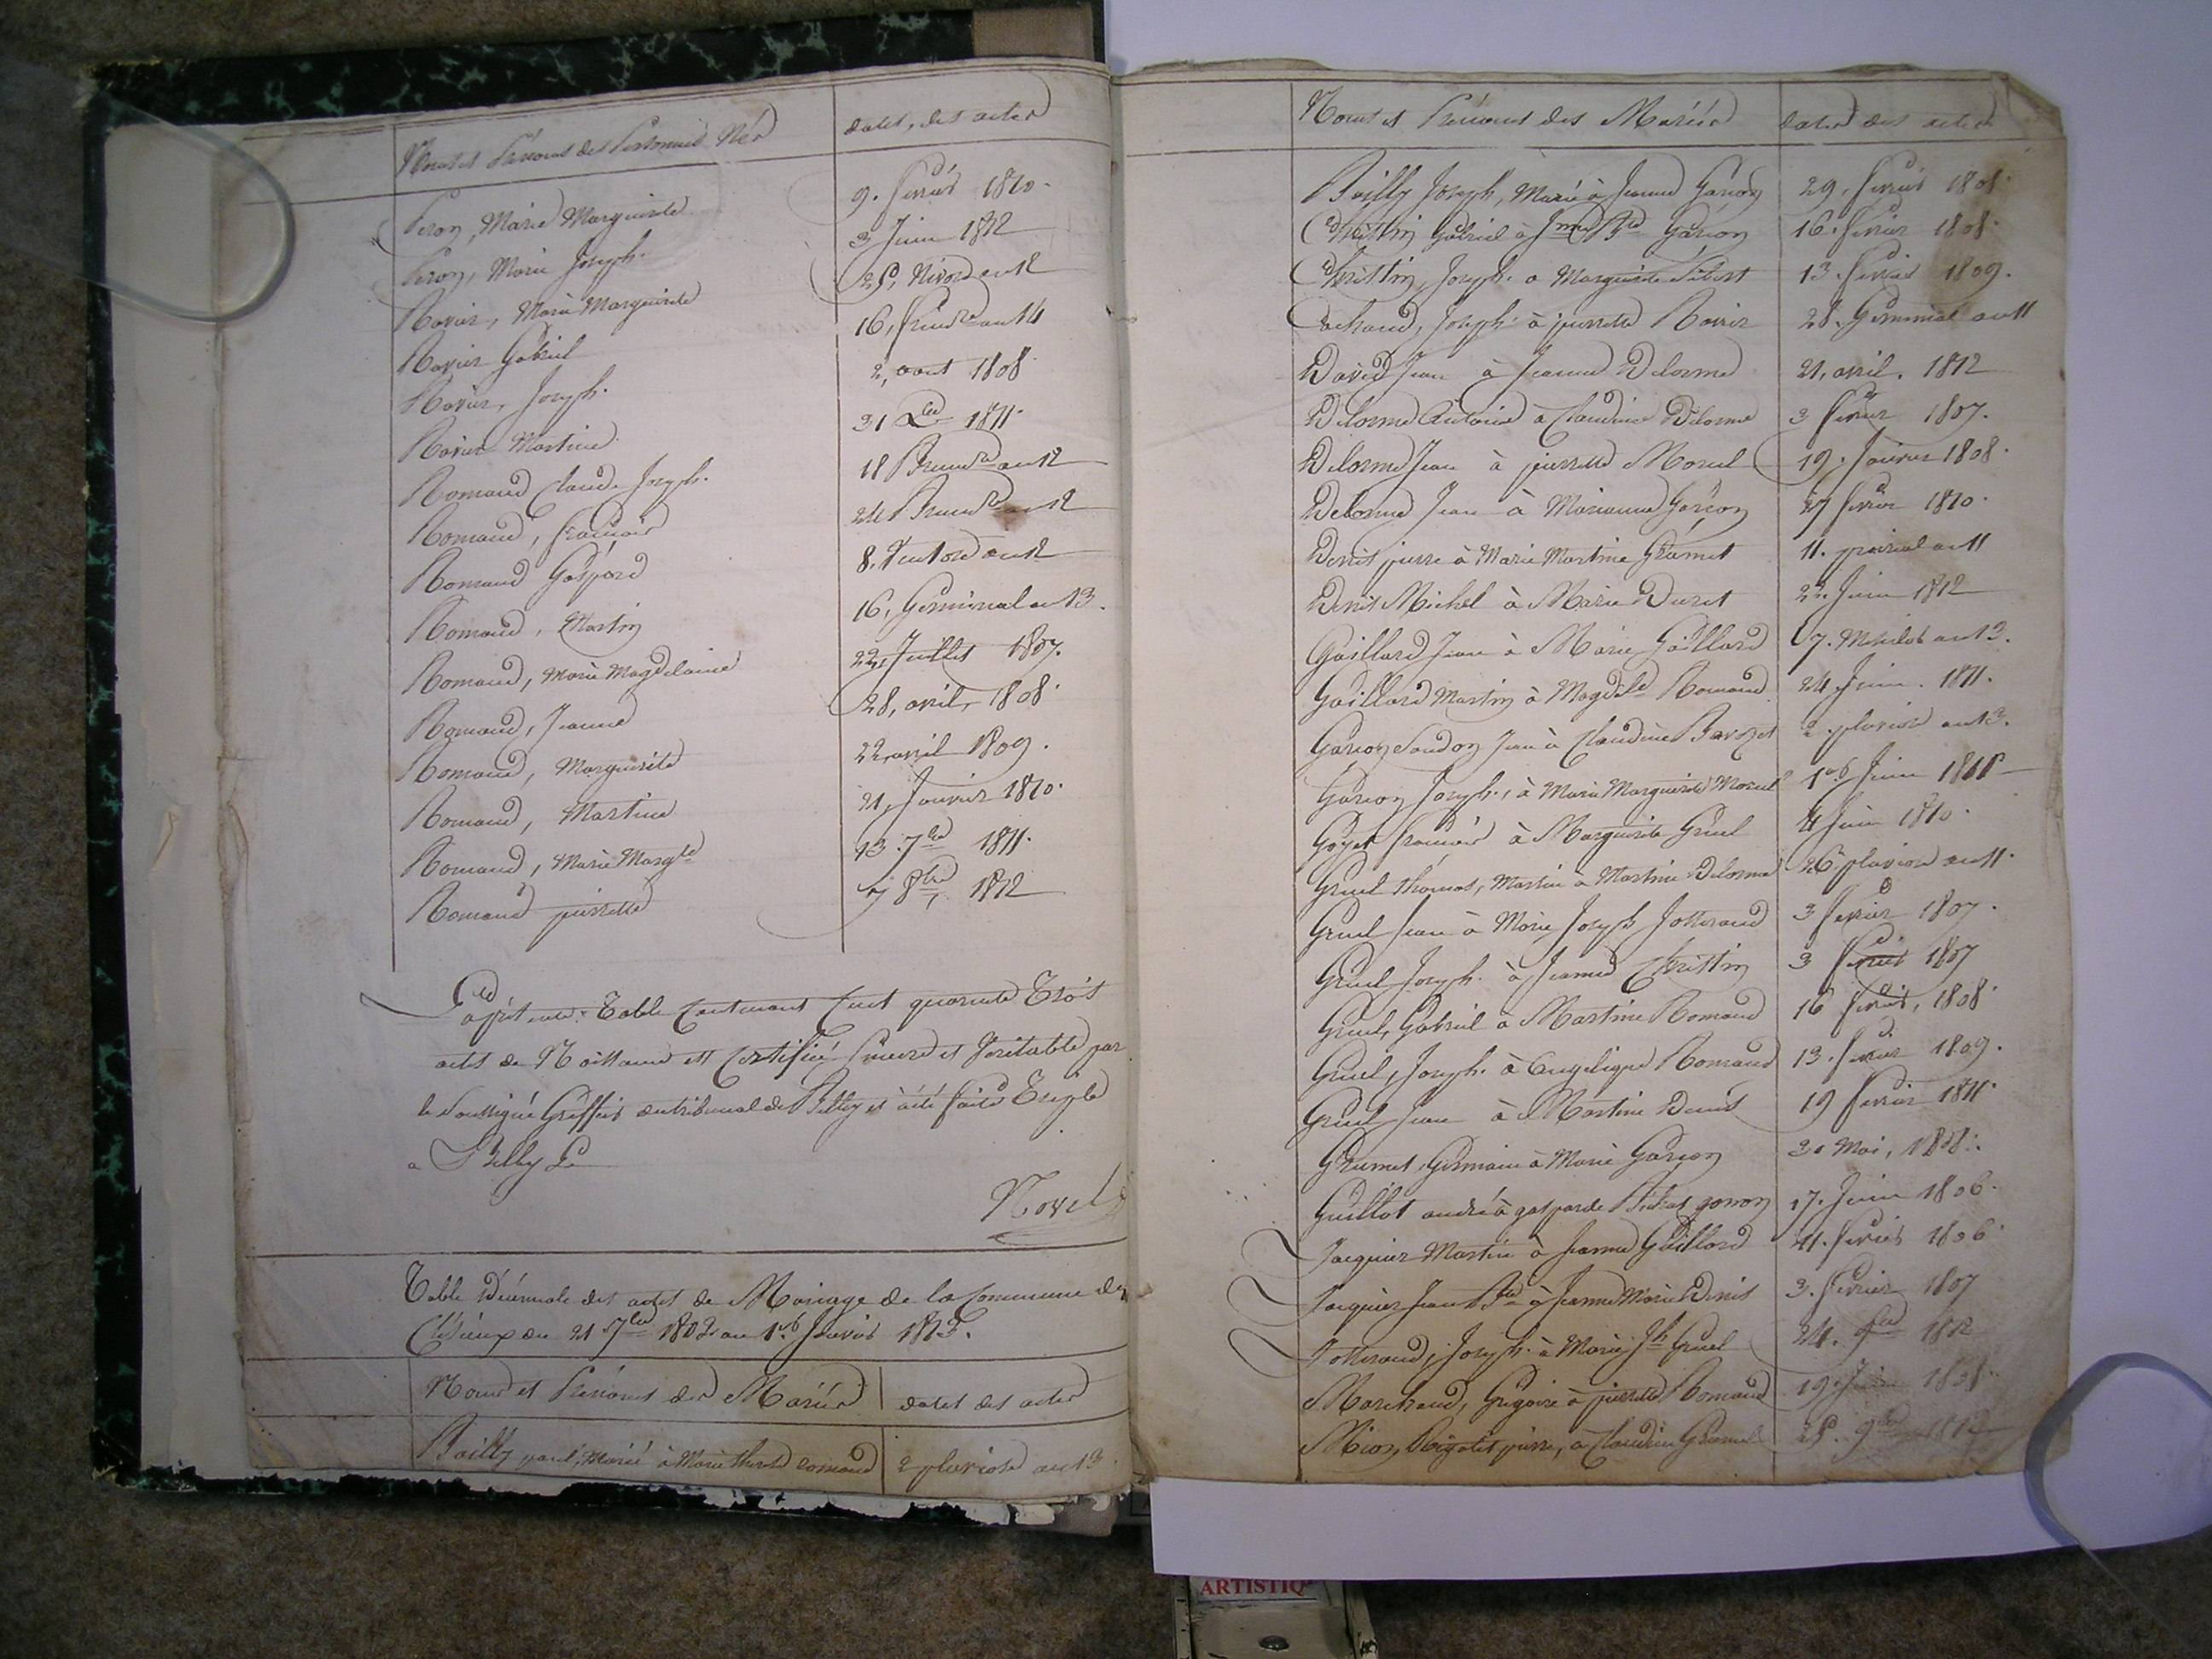 Noms et Prénoms des Personnes Nés dates, des actes
Peron, Marie Marguerite 9. fevrier 1810.
Peron, Marie Joseph. 3 Juin 1812
Ravier, Marie Marguerite 25, Nivose an 12
Ravier Gabriel 16, an 14
Ravier, Joseph. 2, aout 1808
Ravier Martine 31 1811.
Romand Claude Joseph. 18 an 12
Romand, francois 24 an 12
Romand Gaspard 8, Ventose an 12
Romand, Martin 16, Germinal an 13.
Romand, Marie Magdelaine 22, Juillet 1807.
Romand, Jeanne 28, avril, 1808.
Romand, Marguerite 22, avril 1809.
Romand, Martine 21, Janvier 1810.
Romand, Marie Margte 13. 7bre 1811.
Romand pierrette 7 8bre, 1812
La présente Table Contenant Cent quarante Trois
actes de Naissance est Certifiée Sincere et Veritable par
le Soussigné Greffier du tribunal de Belley et à été faite Triple
a Belley Le
Novel
Table Décennale des actes de Mariage de la Commune de
du 21 7bre 1802 au 1er Janvier 1813.
Noms et Prénoms des Mariés dates des actes
Bailly paul, Marié à Marie therese romand 2 pluviose an 13
Noms et Prénoms des Mariés dates des actes
Bailly Joseph, Marié à Jeanne Garion 29, fevrier 1808.
Christin Gabriel à Jnne Bte Garion 16. fevrier 1808.
Christin, Joseph. a Marguerite 13. fevrier 1809.
Cochand, Joseph. à pierrette Ravier 28. Germinal an 11
David Jean à Jeanne Delorme 21, avril. 1812
Delorme Antoine à Claudine Delorme 3 fevrier 1807.
Delorme Jean à pierrette Morel 19. Janvier 1808.
Delorme Jean à Marianne Garion 27 fevrier 1810.
Denis pierre à Marie Martine Grumet 11. prairial an 11
Denis Michel à Marie Duret 22 Juin 1812
Gaillard Jean à Marie Gaillard 7. Messidor an 13.
Gaillard Martin à Magdele Romand 24 Juin. 1811.
Garion Jean à Claudine 2. pluviose an 13.
Garion Joseph., à Marie Marguerite Morel 1er Juin
Goyet francois à Marguerite Gruel 4 Juin 1810.
Gruel thomas, Martin à Martine Delorme 26 pluviose an 11.
Gruel Jean à Marie Joseph Jotterand 3 fevrier 1807.
Gruel Joseph. à Jeanne Christin 3 fevrier 1807
Gruel, Gabriel à Martine Romand 16 fevrier, 1808.
Gruel, Joseph. à Angelique Romand 13. fevrier 1809.
Gruel Jean à Martine Denis 19 fevrier 1811.
Grumet, Germain à Marie Garion 30 Mai, 1808.
Guillot andré à gasparde 17. Juin 1806.
Jacquier Martin à Jeanne Gaillard fevrier 1806.
Jacquier Jean Bte à Jeanne Marie Denis 3. fevrier 1807
Jotterand, Joseph. à Marie Jh Gruel 24. 1812
Marchand, Gregoire à pierrette Romand 19. 1808.
pierre, à Claudine 9bre
ARTISTIQ